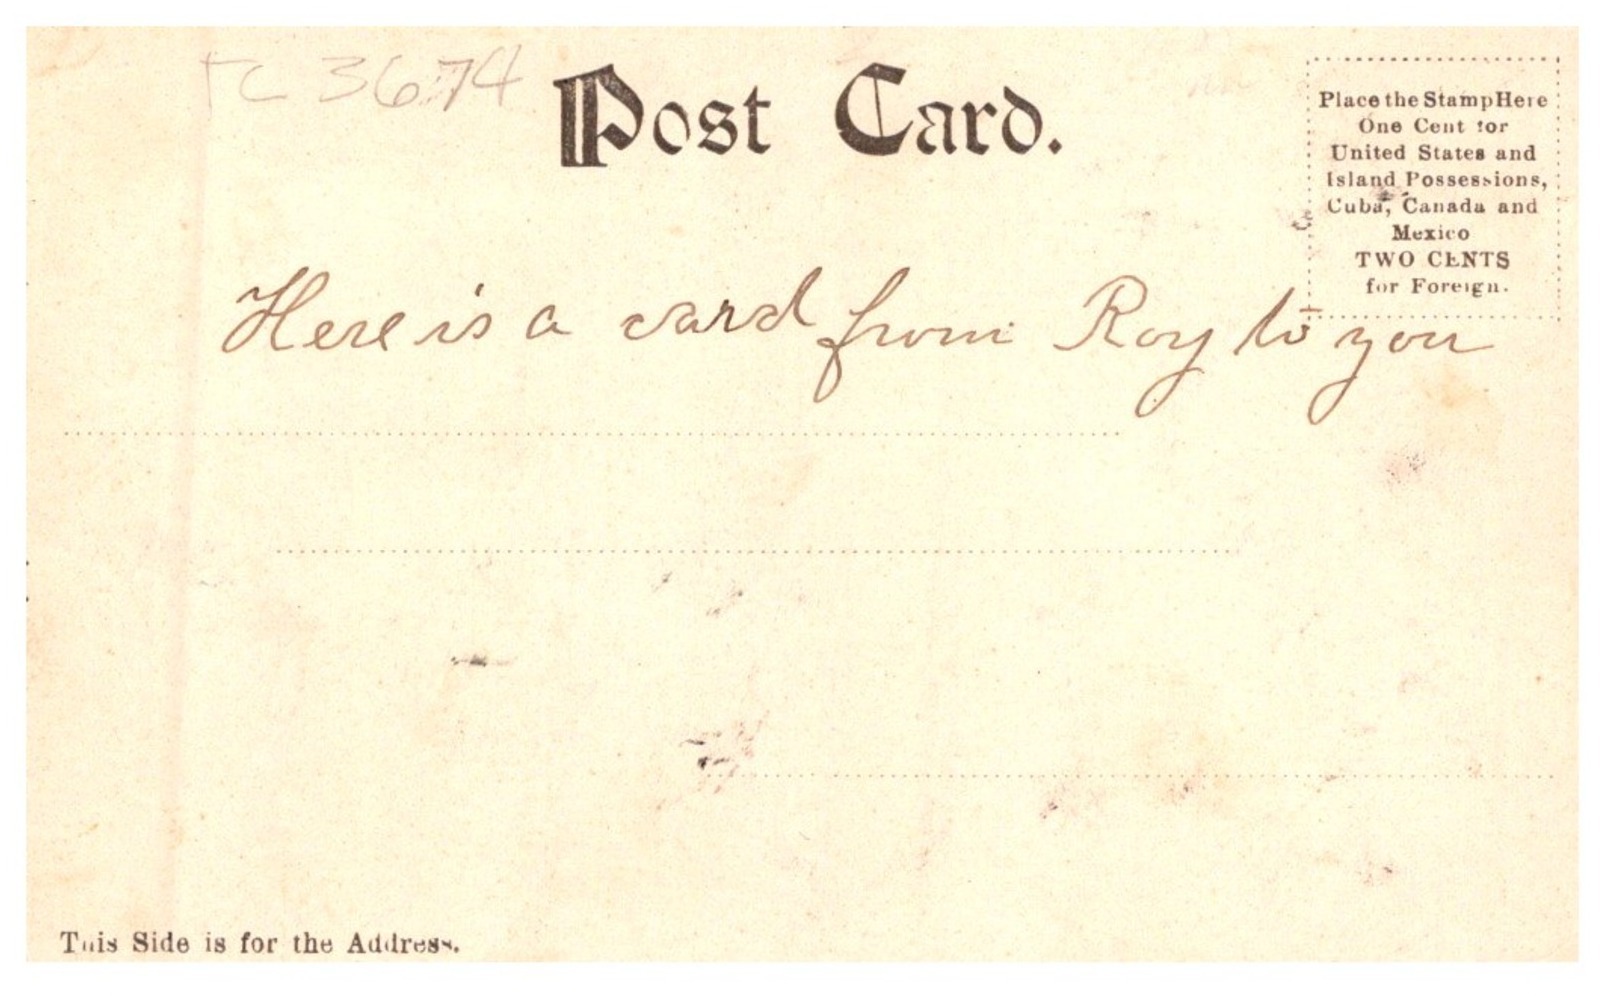 TC 3674
Post Card.
Place the Stamp Here
One Cent for
United States and
Island Possessions,
Cuba, Canada and
Mexico
TWO CENTS
for Foreign.
Here is a card from Roy to you
This Side is for the Address.